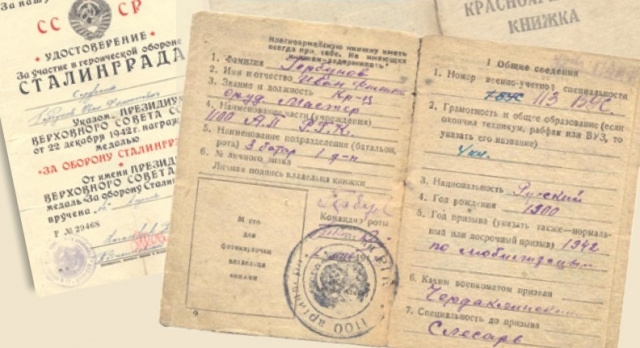 За нашу
СС СР
УДОСТОВЕРЕНИЕ
За участие в героической обороне
СТАЛИНГРАДА
Указом ПРЕЗИДИУ
ВЕРХОВНОГО СОВЕТА СС
от 22 декабря 1942 г. награж
медалью
«ЗА ОБОРОНУ СТАЛИНГР
От имени ПРЕЗИ
ВЕРХОВНОГО СОВЕТА С
медаль „За оборону Сталинг
вручена
Р № 29468
Красноармейскую книжку иметь
всегда при себе. Не имеющих
1. Фамилия Горбунов
2. Имя и отчество Иван
3. Звание и должность Кр-ц
оруд. мастер
4. Наименование части (учреждения)
1100 А.П. Р.Г.К.
5. Наименование подразделения (батальон,
рота) 3 батар 1 д-н
6. № личного знака
Личная подпись владельца книжки
Место
для
фотокарточки
владельца
книжки
Командир роты
КРАСНОАР
КНИЖКА
I Общие сведения
1. Номер военно-учетной специальности
113 ВУС
2. Грамотность и общее образование (если
окончил техникум, рабфак или ВУЗ, то
указать его название)
4 кл.
3. Национальность Русский
4. Год рождения 1900
5. Год призыва (указать также—нормаль-
ный или досрочный призыв) 1942
по мобилизации
6. Каким военкоматом призван
Чердаклинским
7. Специальность до призыва
Слесарь